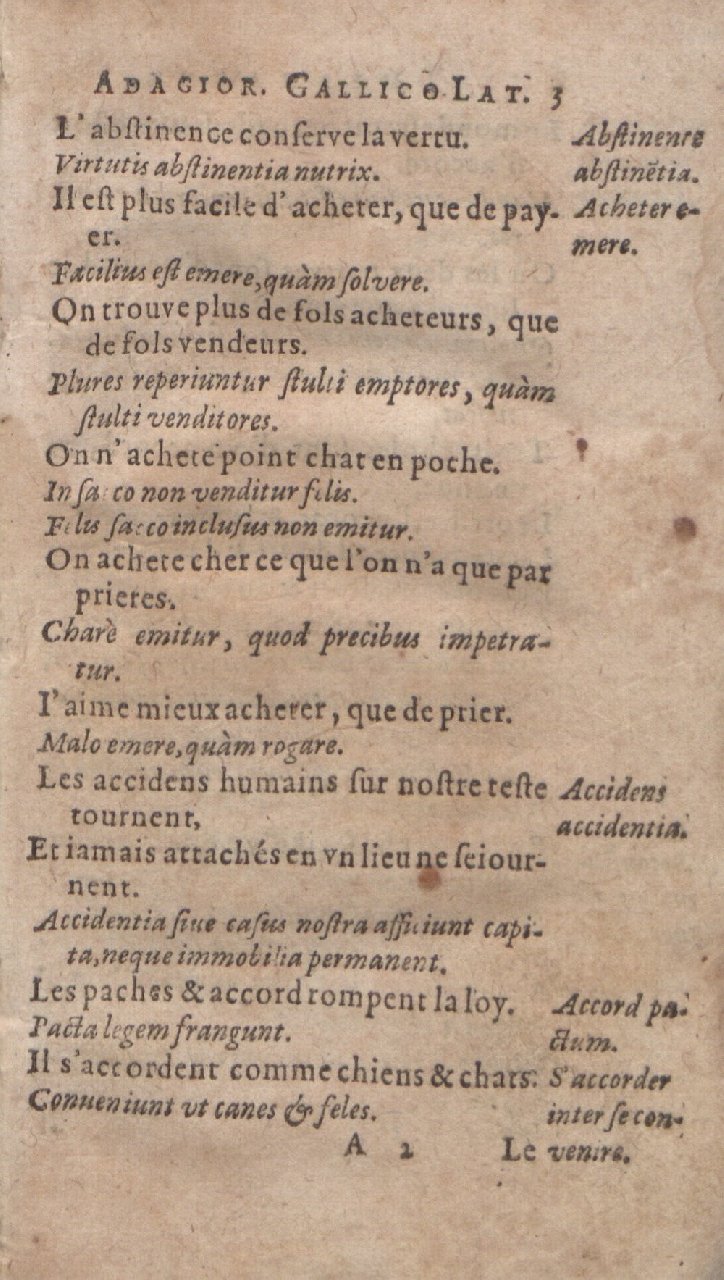 ADAGIOR. GALLICO LAT. 3
L'abſtinence conſerve la vertu.
Abſtinence
Virtutis abſtinentia nutrix.
abſtinẽtia.
Il eſt plus facile d'acheter, que de pay-
Acheter e-
er.
mere.
Facilius eſt emere, quàm ſolvere.
On trouve plus de fols acheteurs, que
de fols vendeurs.
Plures reperiuntur ſtulti emptores, quàm
ſtulti venditores.
On n'achete point chat en poche.
In ſacco non venditur felis.
Felis ſacco incluſus non emitur.
On achete cher ce que l'on n'a que par
prieres.
Charè emitur, quod precibus impetra-
tur.
I'aime mieux acheter, que de prier.
Malo emere, quàm rogare.
Les accidens humains ſur noſtre teſte
Accidens
tournent,
accidentia.
Et iamais attachés en vn lieu ne ſeiour-
nent.
Accidentia ſiue caſus noſtra afficiunt capi-
ta, neque immobilia permanent.
Les paches & accord rompent la loy.
Accord pa-
Pacta legem frangunt.
ctum.
Il s'accordent comme chiens & chats.
S'accorder
Conueniunt vt canes & feles.
inter ſe con-
A 2
Le
venire.